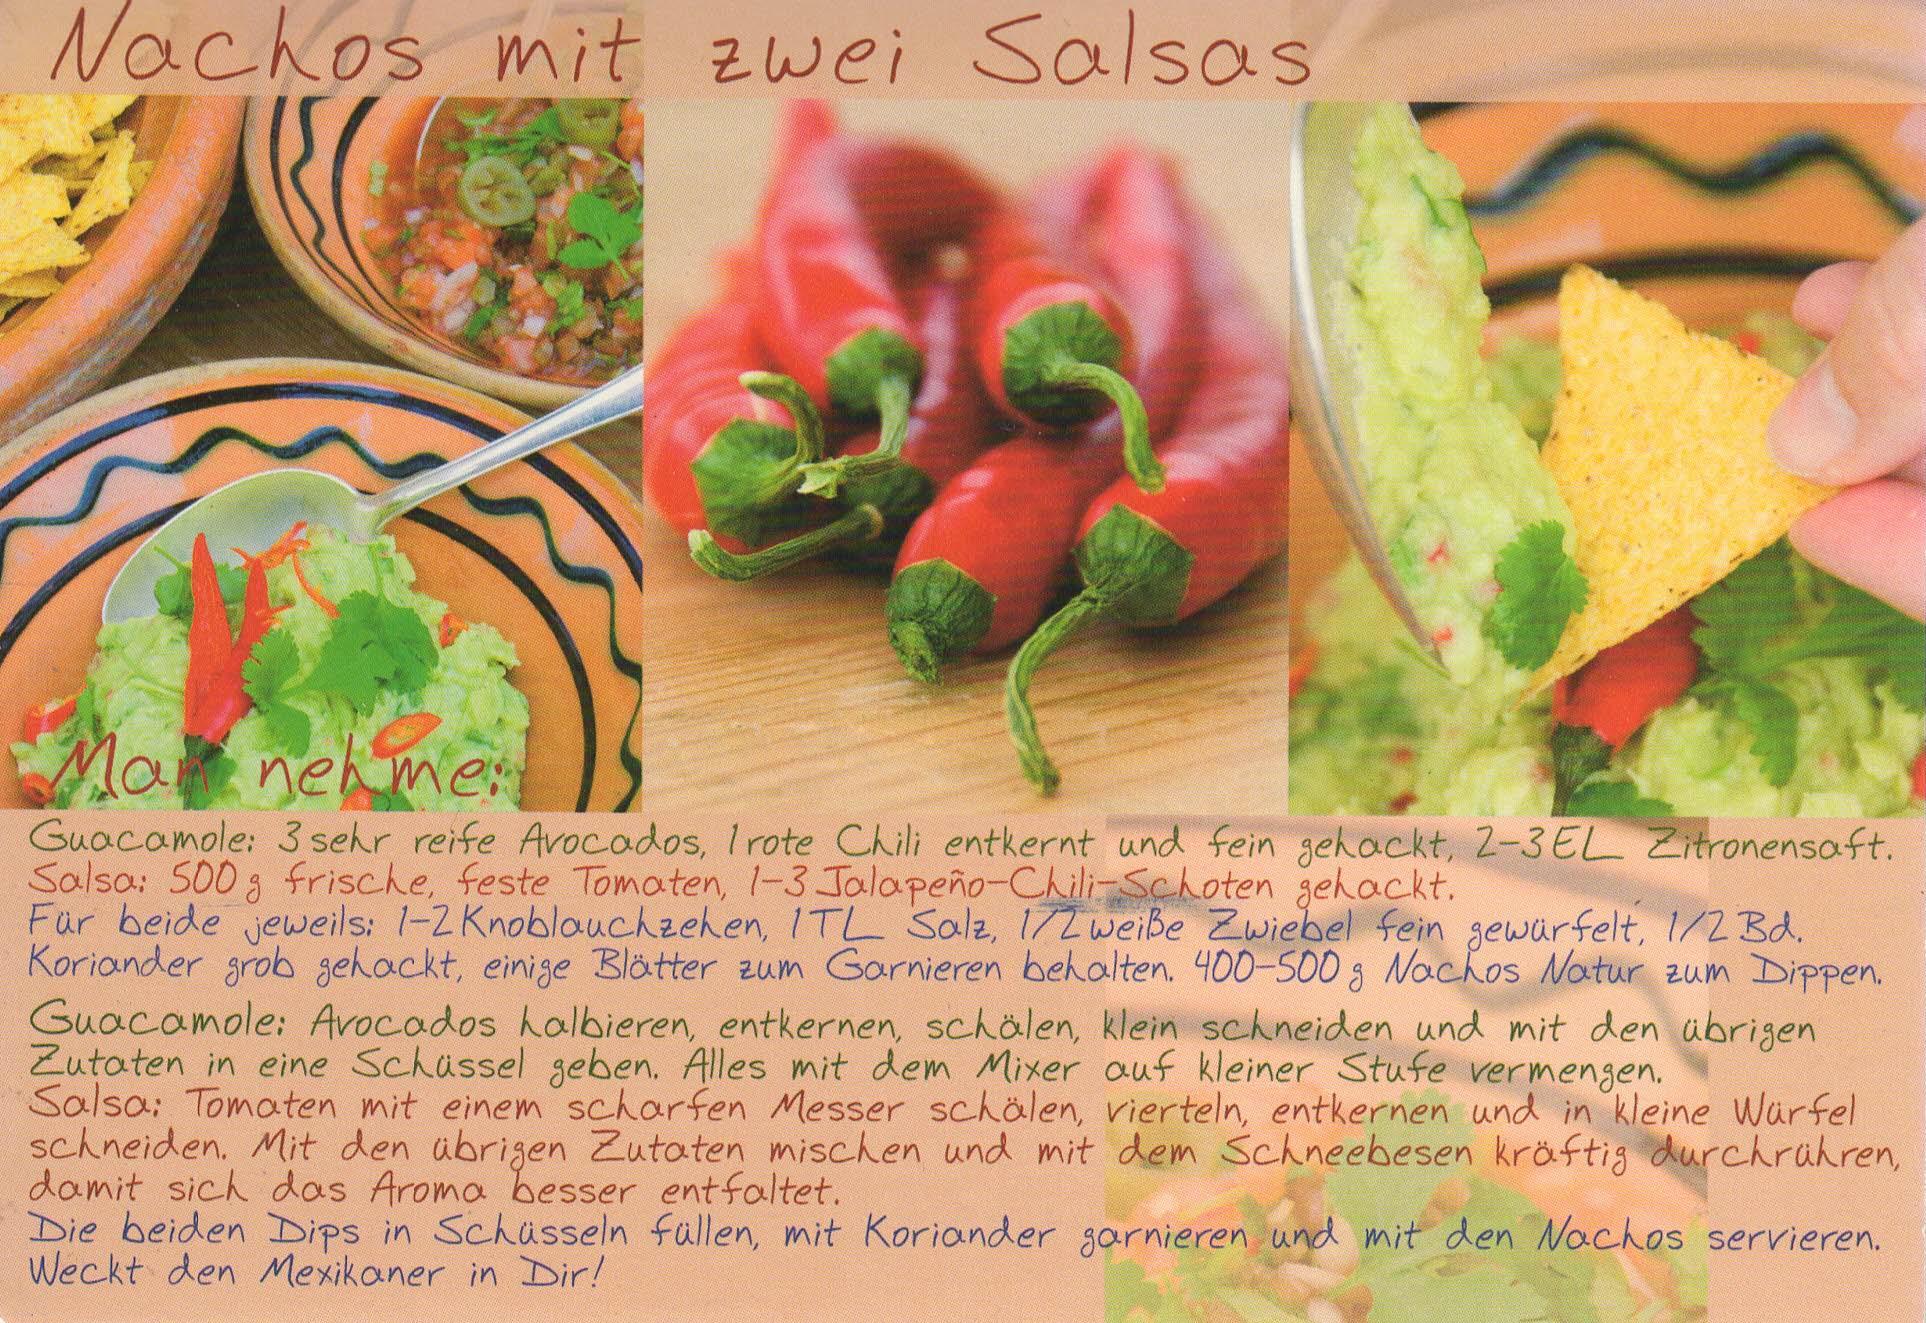 Nachos mit zwei Salsas
Man nehme:
Guacamole: 3 sehr reife Avocados, 1 rote Chili entkernt und fein gehackt, 2-3 EL Zitronensaft.
Salsa: 500 g frische, feste Tomaten, 1-3 Jalapeño-Chili-Schoten gehackt.
Für beide jeweils: 1-2 Knoblauchzehen, 1 TL Salz, 1/2 weiße Zwiebel fein gewürfelt, 1/2 Bd.
Koriander grob gehackt, einige Blätter zum Garnieren behalten. 400-500 g Nachos Natur zum Dippen.
Guacamole: Avocados halbieren, entkernen, schälen, klein schneiden und mit den übrigen
Zutaten in eine Schüssel geben. Alles mit dem Mixer auf kleiner Stufe vermengen.
Salsa: Tomaten mit einem scharfen Messer schälen, vierteln, entkernen und in kleine Würfel
schneiden. Mit den übrigen Zutaten mischen und mit dem Schneebesen kräftig durchrühren,
damit sich das Aroma besser entfaltet.
Die beiden Dips in Schüsseln füllen, mit Koriander garnieren und mit den Nachos servieren.
Weckt den Mexikaner in Dir!